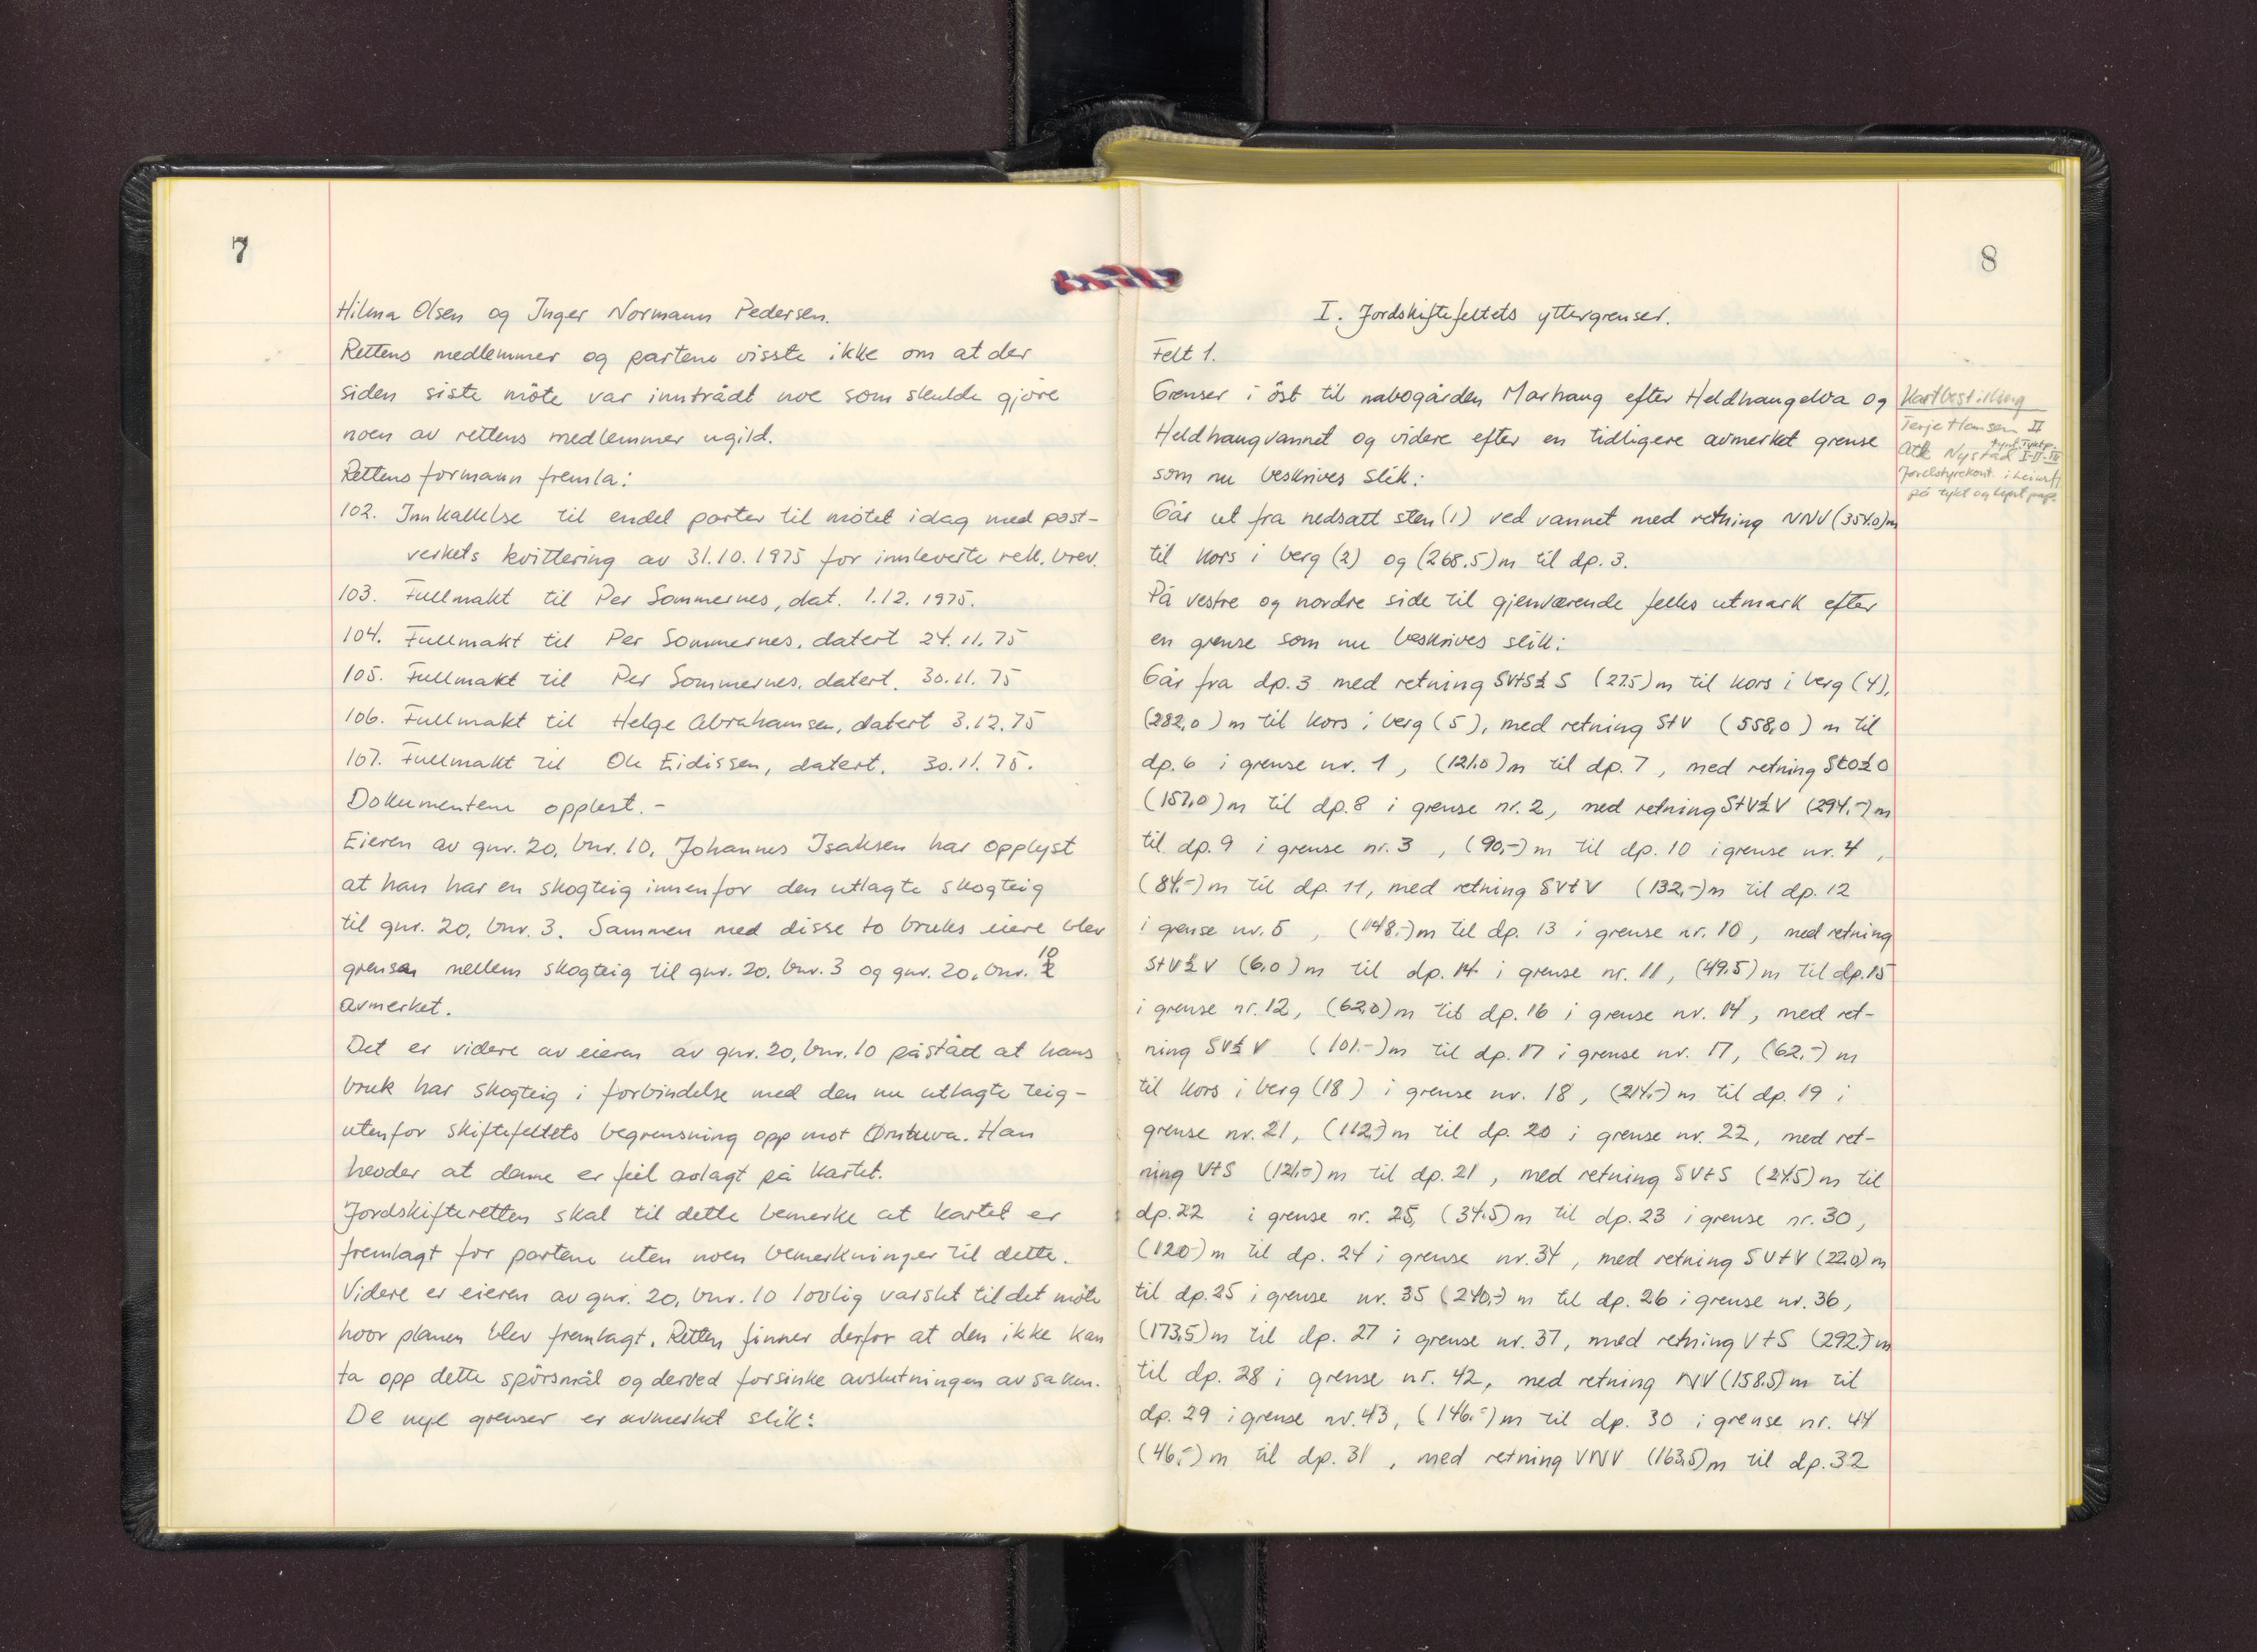 7
Hilma Olsen og Inger Normann Pedersen.
Rettens medlemmer og partene visste ikke om at der
siden siste möte var inntrådt noe som skulde gjöre
noen av rettens medlemmer ugild.
Rettens formann fremla:
102. Innkallelse til endel parter til mötet idag med post-
verkets kvittering av 31.10.1975 for innleverte rek. brev.
103. Fullmakt til Per Sommernes, dat. 1.12. 1975.
104. Fullmakt til Per Sommernes, datert 24.11.75
105. Fullmakt til Per Sommernes, datert. 30.11.75
106. Fullmakt til Helge Abrahamsen, datert 3.12.75
107. Fullmakt til Ole Eidissen, datert. 30.11.75.
Dokumentene opplest.-
Eieren av gnr. 20, bnr. 10, Johannes Isaksen har opplyst
at han har en skogteig innenfor den utlagte skogteig
til gnr. 20, bnr. 3. Sammen med disse to bruks eiere blev
grensen mellem skogteig til gnr. 20, bnr. 3 og gnr. 20, bnr. 10
avmerket.
Det er videre av eieren av gnr. 20, bnr. 10 påstått at hans
bruk har skogteig i forbindelse med den nu utlagte teig-
utenfor skiftefeltets begrensning opp mot Örntuva. Han
hevder at denne er feil avlagt på kartet.
Jordskifteretten skal til dette bemerke at kartet er
fremlagt for partene uten noen bemerkninger til dette.
Videre er eieren av gnr. 20, bnr. 10 lovlig varslet til det möte
hvor planen blev fremlagt. Retten finner derfor at den ikke kan
ta opp dette spörsmål og derved forsinke avslutningen av saken.
De nye grenser er avmerket slik:
8
I. Jordskiftefeltets yttergrenser.
Felt 1.
Grenser i öst til nabogården Marhaug efter Heldhaugelva og
Heldhaugvannet og videre efter en tidligere avmerket grense
som nu beskrives slik:
Går ut fra nedsatt sten (1) ved vannet med retning NNV (354.0)m
til kors i berg (2) og (268.5)m til dp. 3.
På vestre og nordre side til gjenværende felles utmark efter
en grense som nu beskrives slik:
Går fra dp. 3 med retning SVtS½S (275)m til kors i berg (4),
(282,0)m til kors i berg (5), med retning StV (558,0) m til
dp. 6 i grense nr. 1, (121.0)m til dp. 7, med retning StO½O
(157,0)m til dp. 8 i grense nr. 2, med retning StV½V (294,-)m
til dp. 9 i grense nr. 3, (90,-)m til dp. 10 i grense nr. 4,
(84,-)m til dp. 11, med retning SVtV (132,-)m til dp. 12
i grense nr. 5, (148,-)m til dp. 13 i grense nr. 10, med retning
StV½V (6,0)m til dp. 14 i grense nr. 11, (49.5)m til dp. 15
i grense nr. 12, (62,0)m til dp. 16 i grense nr. 14, med ret-
ning SV½V (101.-)m til dp. 17 i grense nr. 17, (62,-) m
til kors i berg (18) i grense nr. 18, (214,-) m til dp. 19 i
grense nr. 21, (112,-)m til dp. 20 i grense nr. 22, med ret-
ning VtS (121,-)m til dp. 21, med retning SVtS (24.5)m til
dp. 22 i grense nr. 25, (34.5)m til dp. 23 i grense nr. 30,
(120-)m til dp. 24 i grense nr. 34, med retning SVtV (22,0)m
til dp. 25 i grense nr. 35 (240,-) m til dp. 26 i grense nr. 36,
(173,5)m til dp. 27 i grense nr. 37, med retning VtS (292,-)m
til dp. 28 i grense nr. 42, med retning NV (158.5)m til
dp. 29 i grense nr. 43, (146,-)m til dp. 30 i grense nr. 44
(46,-)m til dp. 31, med retning VNV (163,5)m til dp. 32
Kartbestilling
Terje Hansen II
tynt. Tykt p.
Atle Nystad I-II-III
Jordstyrekont. i
på tykt og tynt pap.